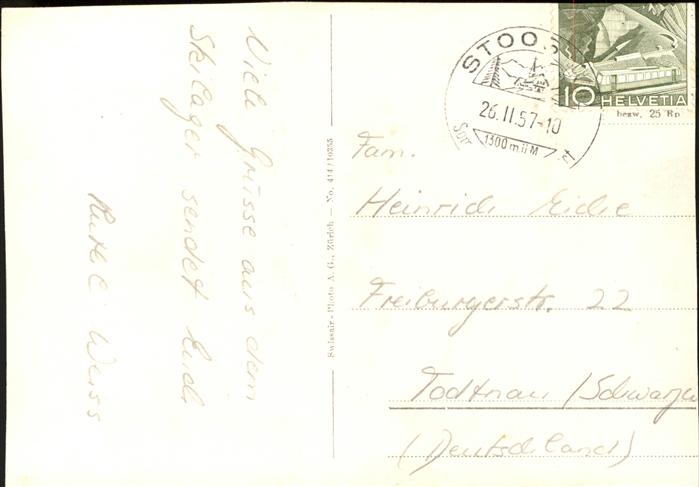 Viele Grüsse aus dem
Skilager sendet Euch
Weiss
Swissair-Photo A. G., Zürich — No. 414/10355
STOOS
26.II.57-10
1300 m ü M
10 HELVETIA
bezw. 25 Rp
Fam.
Heinrich Eiche
Freiburgerstr. 22
Todtnau /Schwarzw
(Deutschland)